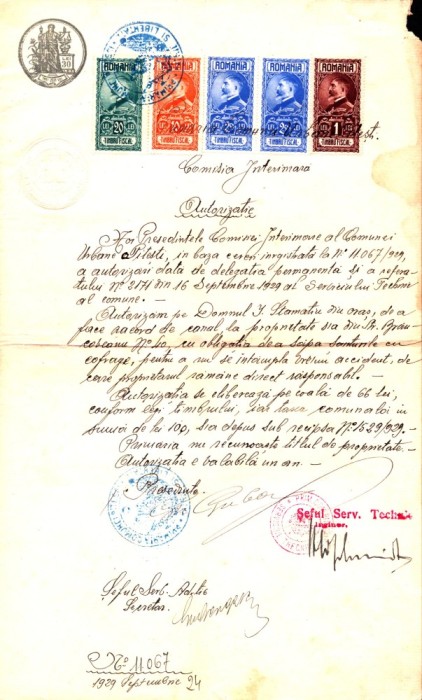 ROMANIA ROMANIA ROMANIA ROMANIA ROMANIA
20 LEI 1
TIMBRU FISCAL TIMBRU FISCAL TIMBRU FISCAL TIMBRU FISCAL TIMBRU FISCAL
Comisia Interimara
Autorizatie
Noi Presedintele Comisiei Interimare al Comunei
Urbane Pitesti, in baza cererei inregistrata la Nº 11.067/929,
a autorizari data de delegatia permanentă și a refera-
tului Nº 2171 din 16 Septembrie 1929 al Serviciului Technic
al comunei. –
Autorizam pe Domnul I. Stamatiu din oraș, de a
face racord de canal la proprietate sa din Str. Bran-
coveanu Nº 40, cu obligatia de a
cofrage, pentru a nu se intâmpla vreun accident, de
care proprietarul ramâne direct răsponsabil. –
Autorizatia se eliberează pe coală de 66 Lei,
conform legi timbrului, iar taxa comunala in
suma de 100, s'a depus sub recipisa Nº 1529/929. –
Primăria nu recunoaste titlul de proprietate. –
Autorizatia e valabilă un an. –
Presedinte,
Șeful Serv. Technic
Inginer,
Șeful Serv. Ad-tie
Secretar,
Nº 11067
1929 Septembrie 24